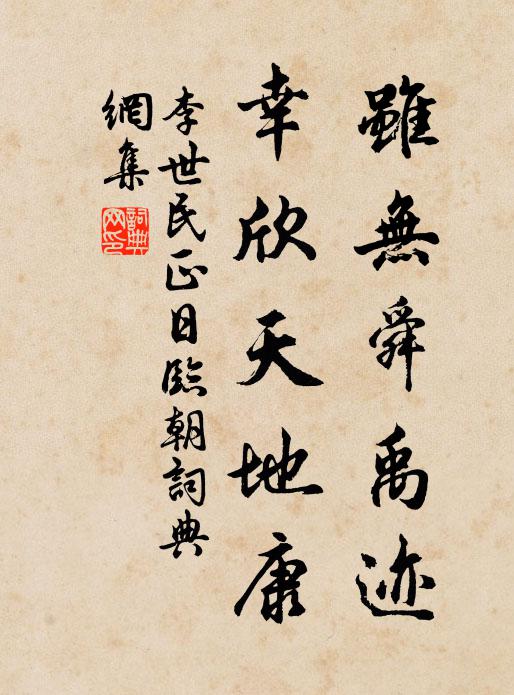 雖無舜禹迹
幸欣天地康
李世民正日臨朝詞典
網集
詞典
网印